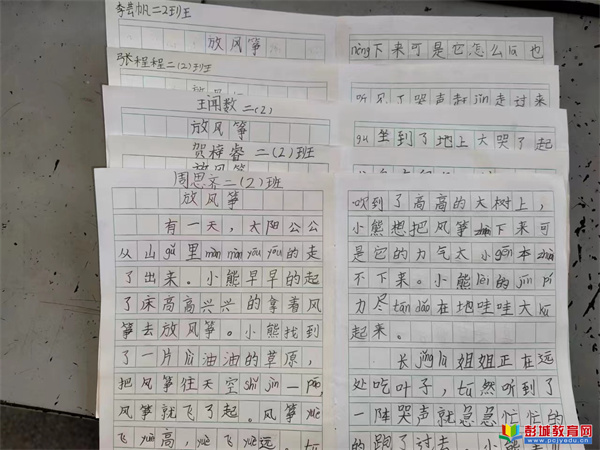 李芸帆二2班
放风筝
nòng下来可是它怎么lā也
张程程二(2)班
听见了哭声赶jǐn走过来
王闻数 二(2)
放风筝
gǔ坐到了地上大哭了起
贺梓睿 二(2)班
放风筝
周思齐二(2)班
放风筝
有一天，太阳公公
从山gǔ里màn màn yōu yōu的走
了出来。小熊早早的起
了床高高兴兴的拿着风
筝去放风筝。小熊找到
了一片lǜ油油的草原，
把风筝往天空shǐ jìn一pāo,
风筝就飞了起。风筝yuè
飞yuè高，yuè飞yuè远
吹到了高高的大树上，
小熊想把风筝zhāi下来可
是它的力气太小gēn本zhāi
不下来。小熊lèi的jīn pí
力尽tān dǎo在地哇哇大kū
起来。
长jǐng lù姐姐正在远
处吃叶子，tū然听到了
一阵哭声就急急忙忙的
的跑了过去。小熊
彭城教育网
www.pcjyedu.cn